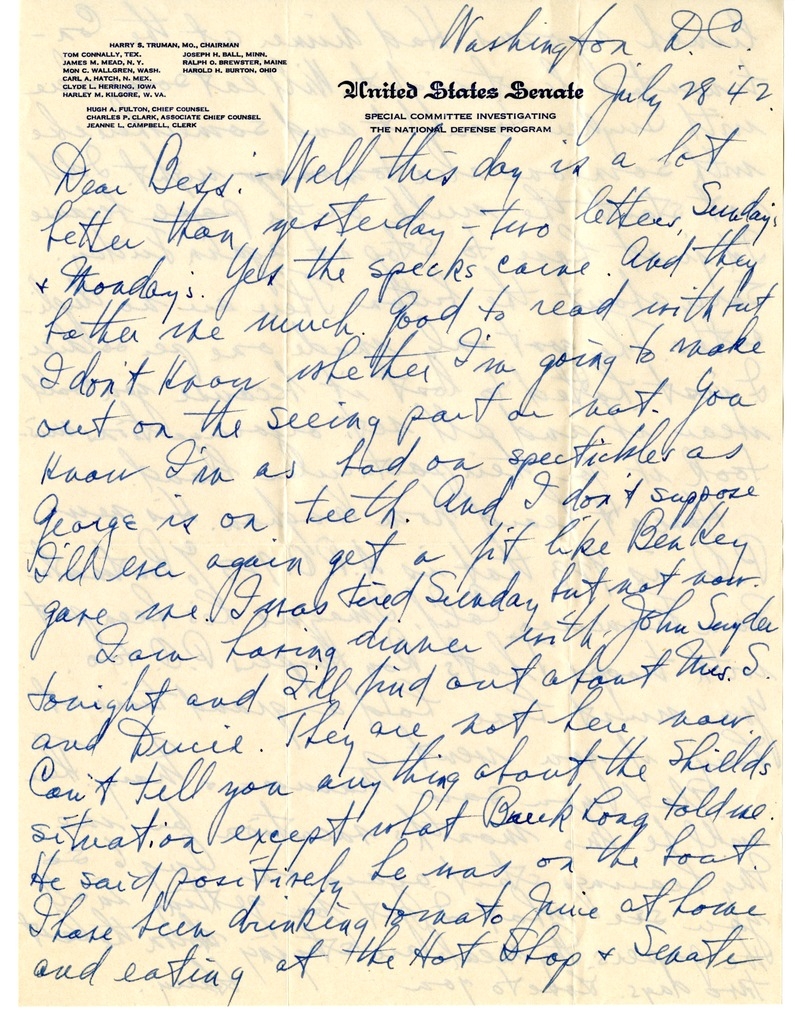 Washington D.C.
July 28 '42
HARRY S. TRUMAN, MO., CHAIRMAN
TOM CONNALLY, TEX.
JAMES M. MEAD, N. Y.
MON C. WALLGREN, WASH.
CARL A. HATCH, N. MEX.
CLYDE L. HERRING, IOWA
HARLEY M. KILGORE, W. VA.
JOSEPH H. BALL, MINN.
RALPH O. BREWSTER, MAINE
HAROLD H. BURTON, OHIO
HUGH A. FULTON, CHIEF COUNSEL
CHARLES P. CLARK, ASSOCIATE CHIEF COUNSEL
JEANNE L. CAMPBELL, CLERK
United States Senate
SPECIAL COMMITTEE INVESTIGATING
THE NATIONAL DEFENSE PROGRAM
Dear Bess:- Well this day is a lot
better than yesterday - two letters, Sundays
+ Mondays. Yes the specks came. And they
bother me much. Good to read with but
I don't know whether I'm going to make
out on the seeing part or not. You
know I'm as bad on spectickles as
George is on teeth. And I don't suppose
I'll ever again get a fit like Ben Key
gave me. I was tired Sunday but not now.
I am having dinner with John Snyder
tonight and I'll find out about Mrs. S.
and Drucie. They are not here now.
Can't tell you anything about the Shields
situation except what Long told me.
He said positively he was on the boat.
I have been drinking tomato juice at home
and eating at the Hot Shop + Senate